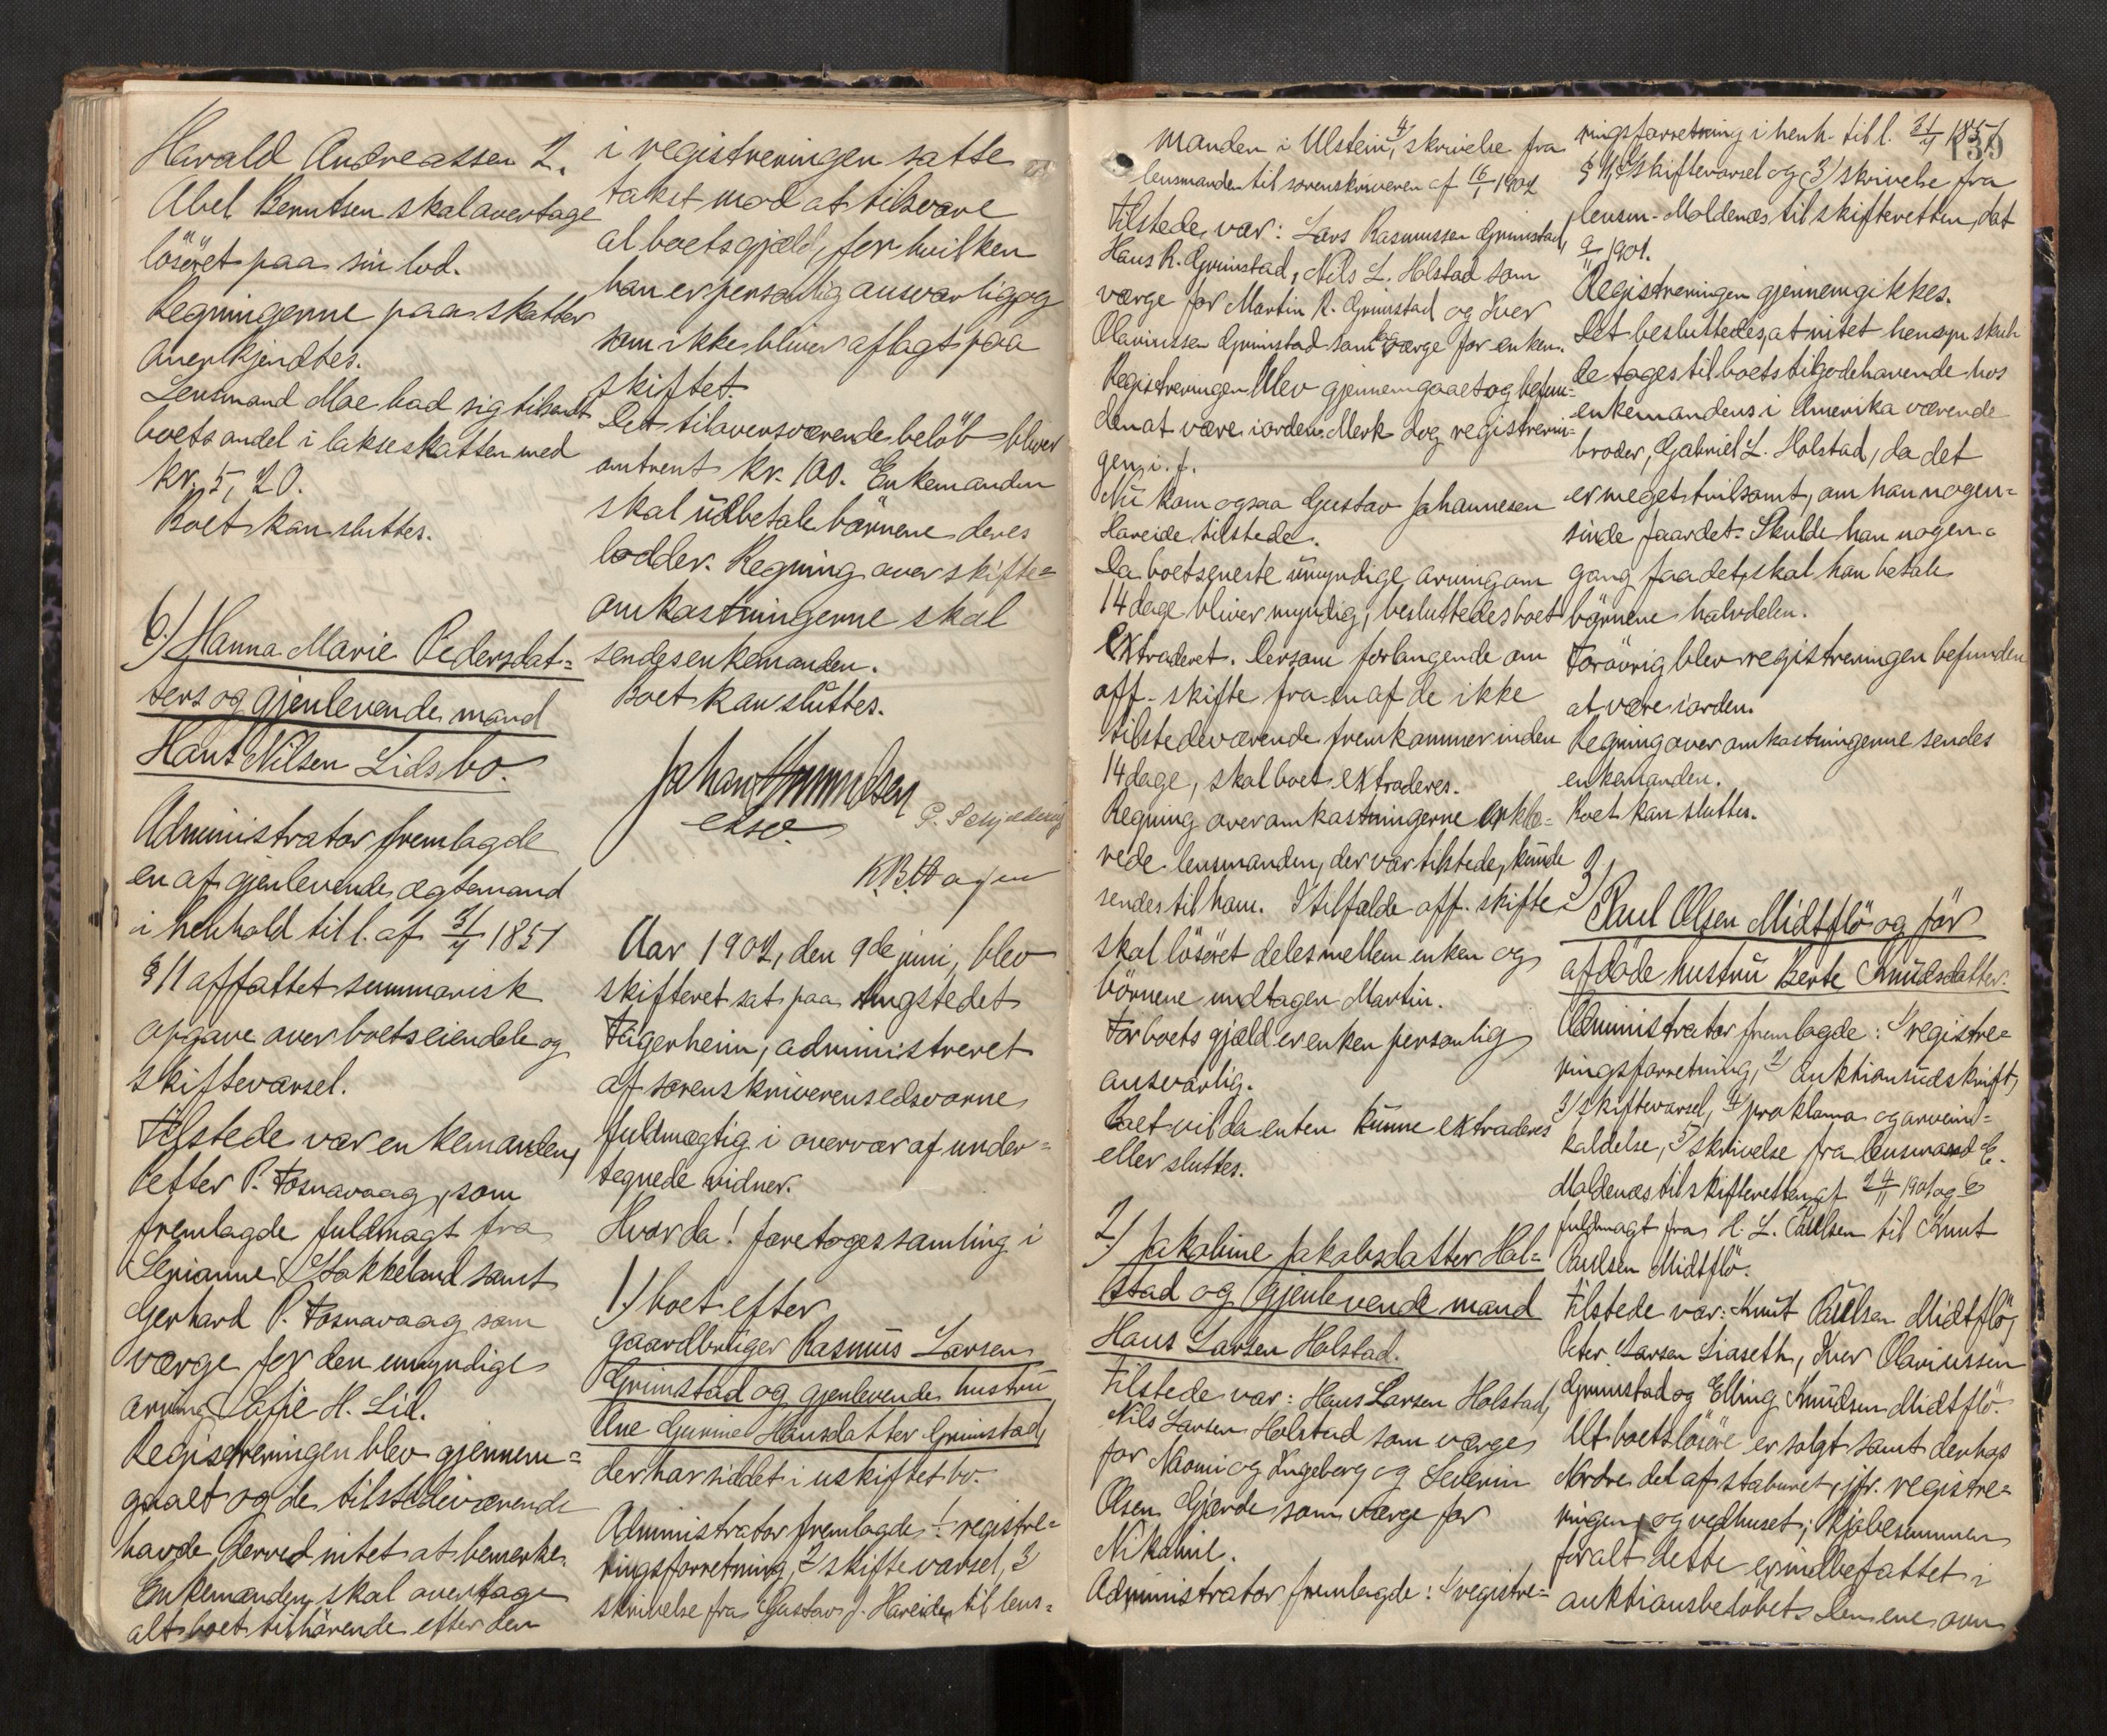 Harald Andreassen 2.
Abel Berntsen skal overtage
løsøret paa sin lod.
Regningerne paa skatter
anerkjendtes.
Lensmand Moe bad sig tilsendt
boets andel i lakseskatten med
kr. 5,20.
Boet kan sluttes.
6.) Hanna Marie Pedersdat=
ters og gjenlevende mand
Hans Nilsen Lids bo.
Administrator fremlagde
en af gjenlevende ægtemand
i henhold til l. af 31/7 1851
§ 11 affattet summarisk
opgave over boets eiendele og
skiftevarsel.
Tilstede var enkemanden,
Peter P. Fosnavaag, som
fremlagde fuldmagt fra
Serianne Stokkeland samt
Gerhard P. Fosnavaag som
værge for den umyndige
arving Sofie H. Lid.
Registreringen blev gjennem=
gaaet og de tilstedeværende
havde derved intet at bemerke.
Enkemanden skal overtage
alt boet tilhørende efter den
i registreringen satte
takst mod at tilsvare
al boets gjæld, for hvilken
han er personlig ansvarlig og
som ikke bliver aflagt paa
skiftet.
Det tiloversværende beløb bliver
omtrent kr. 100. Enkemanden
skal udbetale børnene deres
lodder. Regning over skifte=
omkostningerne skal
sendes enkemanden.
Boet kan sluttes.
Johan Amundsen
edsv.
P. Schjelderup
K. B. Hagen
Aar 1902, den 9de juni, blev
skifteret sat paa tingstedet
Fagerheim, administreret
af sorenskriverens edsvorne
fuldmægtig i overvær af under=
tegnede vidner.
Hvorda! foretoges samling i
1.) boet efter
gaardbruger Rasmus Larsen
Grimstad og gjenlevende hustru
Ane Gurine Hansdatter Grimstad,
der har siddet i uskiftet bo.
Administrator fremlagde 1/ registre=
ringsforretning, 2/ skiftevarsel, 3/
skrivelse fra Gustav J. Hareide til lens=
139
manden i Ulstein, 4/ skrivelse fra
lensmanden til sorenskriveren af 16/1 1902
Tilstede var: Lars Rasmussen Grimstad,
Hans R. Grimstad, Nils L. Holstad som
værge for Martin R. Grimstad og Iver
Olavinssen Grimstad som lagværge for enken.
Registreringen blev gjennemgaaet og befun=
den at være i orden. Merk dog registrerin=
gen i. f.
Nu kom ogsaa Gustav Johannesen
Hareide tilstede.
Da boets eneste umyndige arving om
14 dage bliver myndig, besluttedes boet
extraderet. Dersom forlangende om
off. skifte fra en af de ikke
tilstedeværende fremkommer inden
14 dage, skal boet extraderes.
Regning over omkostningerne erklæ=
rede lensmanden, der var tilstede, kunde
sendes til ham. I tilfælde off. skifte
skal løsøret deles mellem enken og
børnene undtagen Martin.
For boets gjæld er enken personlig
ansvarlig.
Boet vil da enten kunne extraderes
eller sluttes.
2.) Jakobine Jakobsdatter Hol=
stad og gjenlevende mand
Hans Larsen Holstad.
Tilstede var: Hans Larsen Holstad,
Nils Larsen Holstad som værge
for Naomi og Ingeborg og Severin
Olsen Gjærde som værge for
Nikoline.
Administrator fremlagde: 1/ registre=
ringsforretning i henh. til l. 31/7 1851
§ 11, 2/ skiftevarsel og 3/ skrivelse fra
lensm. Moldenæs til skifteretten, dat
9/11 1901.
Registreringen gjennemgikkes.
Det besluttedes, at intet hensyn skul
de tages til boets tilgodehavende hos
enkemandens i Amerika værende
broder, Gabriel L. Holstad, da det
er meget tvilsomt, om han nogen=
sinde faar det. Skulde han nogen=
gang faa det, skal han betale
børnene halvdelen.
Forøvrig blev registreringen befunden
at være i orden.
Regning over omkostningerne sendes
enkemanden.
Boet kan sluttes.
3.)
Paul Olsen Midtflø og før
afdøde hustru Berte Knudsdatter.
Administrator fremlagde: 1/ registre=
ringsforretning, 2/ auktionsudskrift,
3/ skiftevarsel, 4/ proklama og arveind=
kaldelse, 5/ skrivelse fra lensmand E.
Moldenæs til skifteretten af 24/11 1901 og 6/
fuldmagt fra H. L. Paulsen til Knut
Paulsen Midtflø.
Tilstede var: Knut Paulsen Midtflø,
Peter Larsen Liaseth, Iver Olavinssen
Grimstad og Elling Knudsen Midtflø.
Alt boets løsøre er solgt samt derhos
Nordre del af staburet, jfr. registre=
ringen, og vedhuset; kjøbesummen
for alt dette er indbefattet i
auktionsbeløbet. Den ene ovn